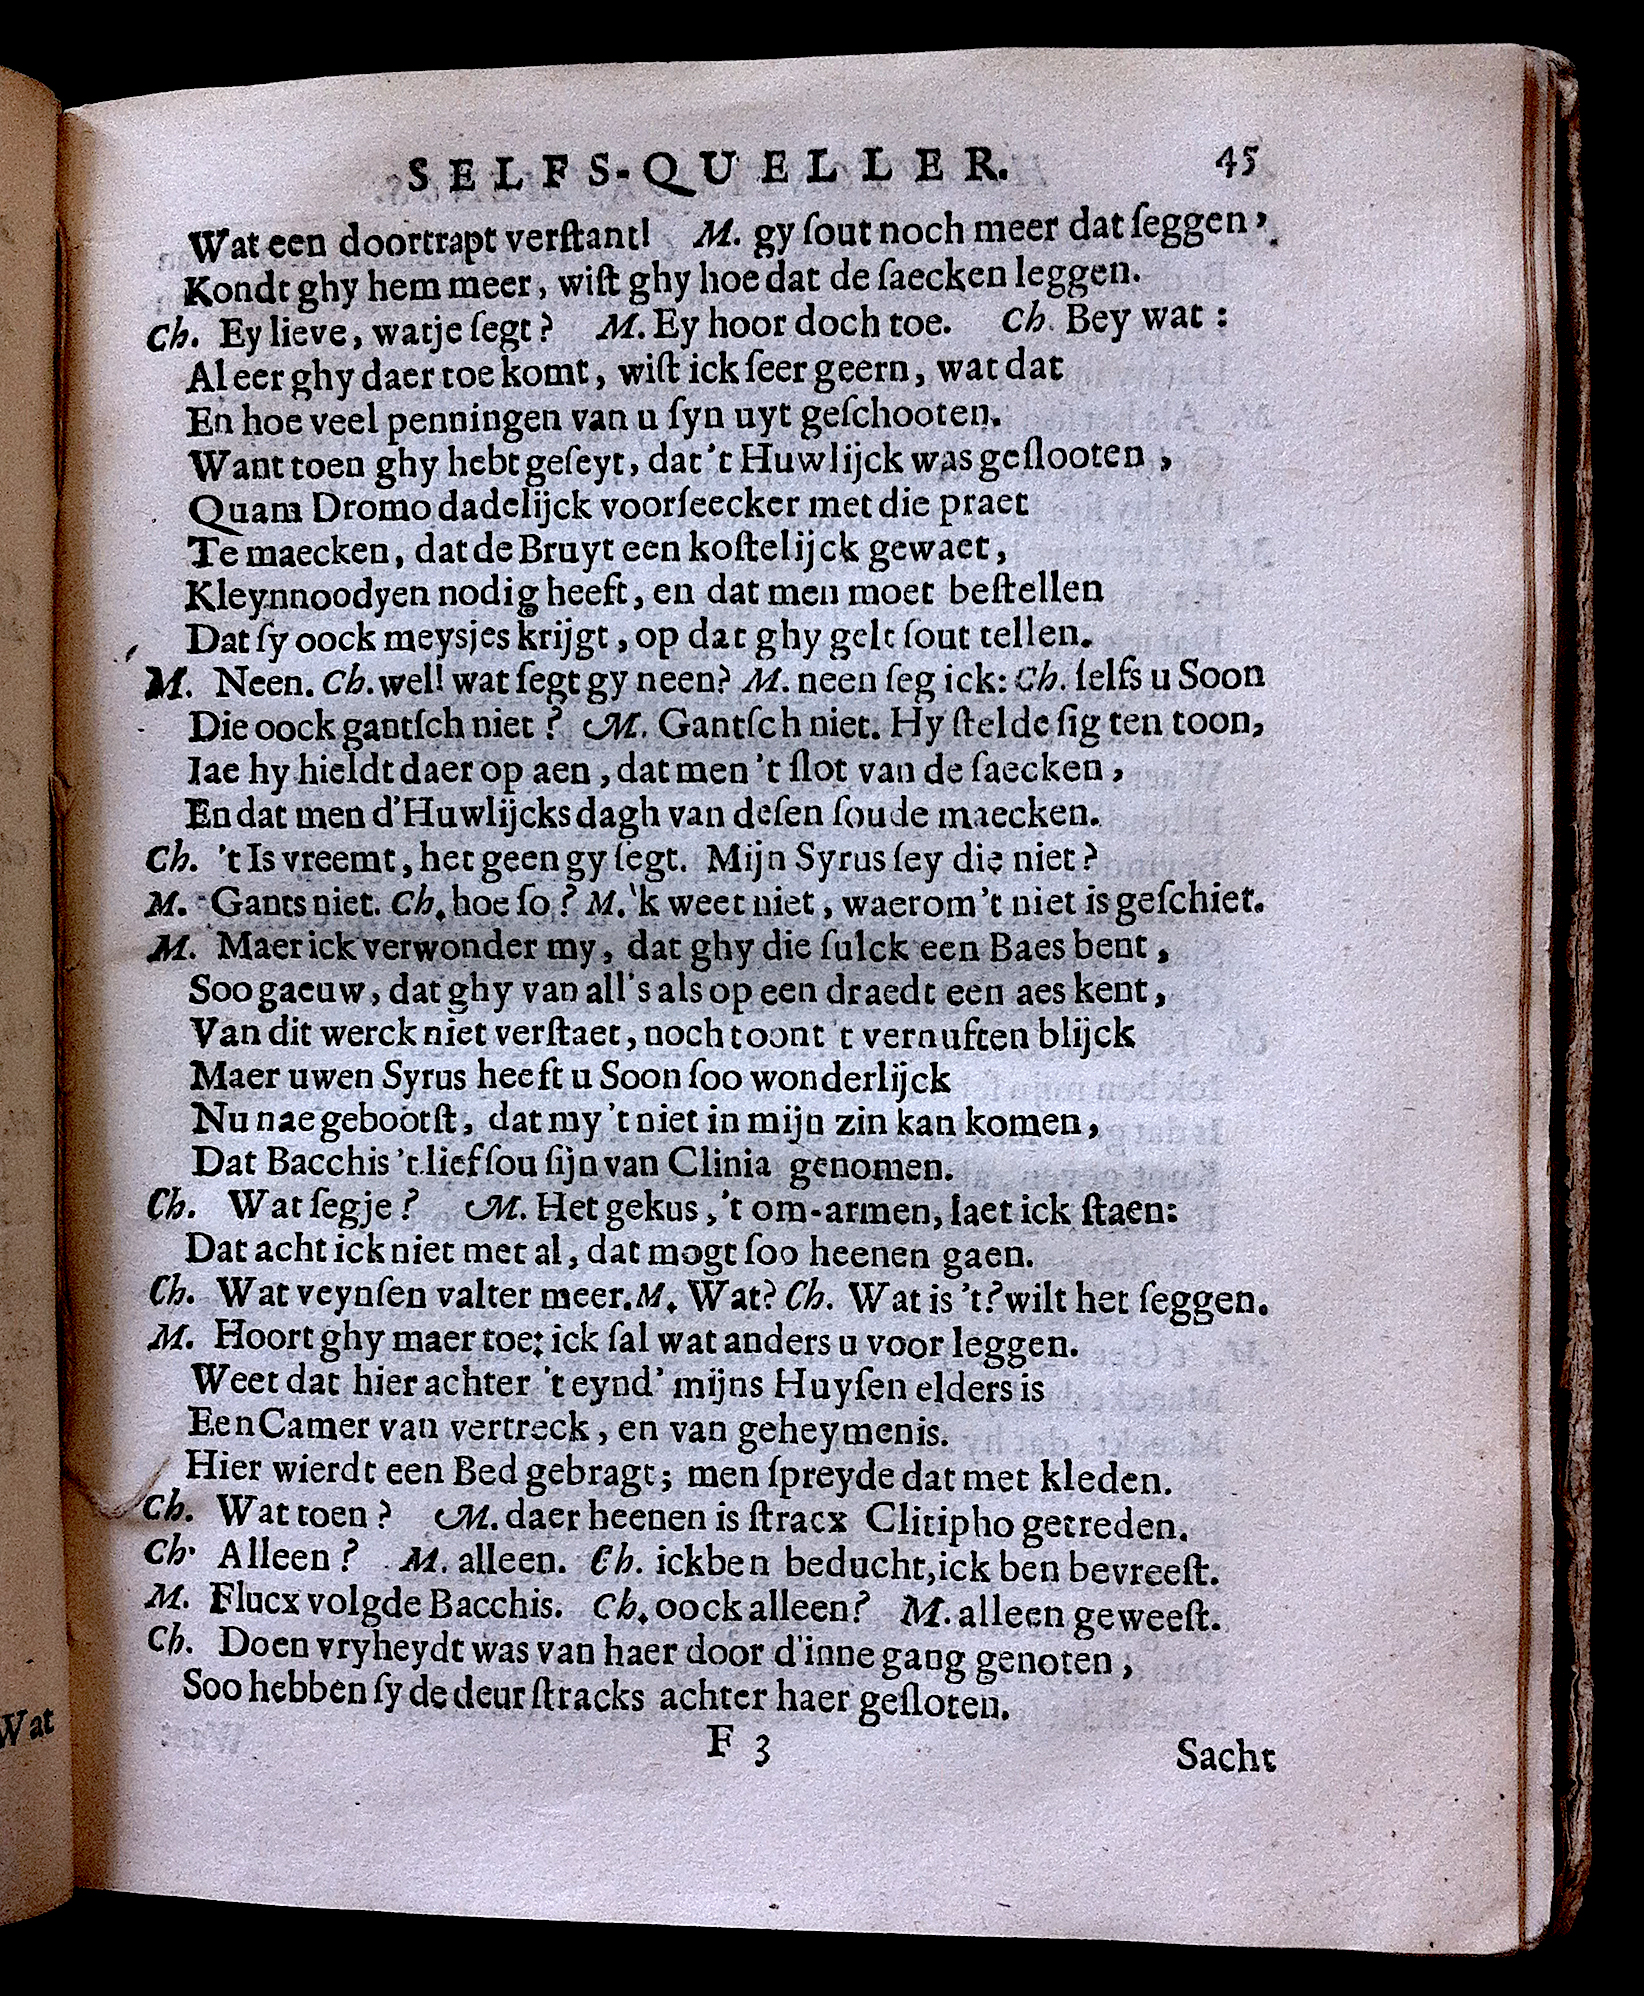 SELFS-QUELLER. 45
Wat een doortrapt verſtant! M. gy ſout noch meer dat ſeggen,
Kondt ghy hem meer, wiſt ghy hoe dat de ſaecken leggen.
Ch. Ey lieve, watje ſegt? M. Ey hoor doch toe. Ch. Bey wat:
Al eer ghy daer toe komt, wiſt ick ſeer geern, wat dat
En hoe veel penningen van u ſyn uyt geſchooten.
Want toen ghy hebt geſeyt, dat 't Huwlijck was geſlooten,
Quam Dromo dadelijck voorſeecker met die praet
Te maecken, dat de Bruyt een koſtelijck gewaet,
Kleynnoodyen nodig heeft, en dat men moet beſtellen
Dat ſy oock meysjes krijgt, op dat ghy gelt ſout tellen.
M. Neen. Ch. well wat ſegt gy neen? M. neen ſeg ick: Ch. ſelfs u Soon
Die oock gantſch niet? M. Gantſch niet. Hy ſtelde ſig ten toon,
Iae hy hieldt daer op aen, dat men 't ſlot van de ſaecken,
En dat men d'Huwlijcks dagh van deſen ſoude maecken.
Ch. 't Is vreemt, het geen gy ſegt. Mijn Syrus ſey die niet?
M. Gants niet. Ch. hoe ſo? M. 'k weet niet, waerom 't niet is geſchiet.
M. Maer ick verwonder my, dat ghy die ſulck een Baes bent,
Soo gaeuw, dat ghy van all's als op een draedt een aes kent,
Van dit werck niet verſtaet, noch toont 't vernuften blijck
Maer uwen Syrus heeft u Soon ſoo wonderlijck
Nu nae gebootſt, dat my 't niet in mijn zin kan komen,
Dat Bacchis 't lief ſou ſijn van Clinia genomen.
Ch. Wat ſegje? M. Het gekus, 't om-armen, laet ick ſtaen:
Dat acht ick niet met al, dat mogt ſoo heenen gaen.
Ch. Wat veynſen valter meer. M. Wat? Ch. Wat is 't? wilt het ſeggen.
M. Hoort ghy maer toe: ick ſal wat anders u voor leggen.
Weet dat hier achter 't eynd' mijns Huyſen elders is
Een Camer van vertreck, en van geheymenis.
Hier wierdt een Bed gebragt; men ſpreyde dat met kleden.
Ch. Wat toen? M. daer heenen is ſtracx Clitipho getreden.
Ch. Alleen? M. alleen. Ch. ick ben beducht, ick ben bevreeſt.
M. Flucx volgde Bacchis. Ch. oock alleen? M. alleen geweeſt.
Ch. Doen vryheydt was van haer door d'inne gang genoten,
Soo hebben ſy de deur ſtracks achter haer geſloten.
F 3 Sacht
Wat